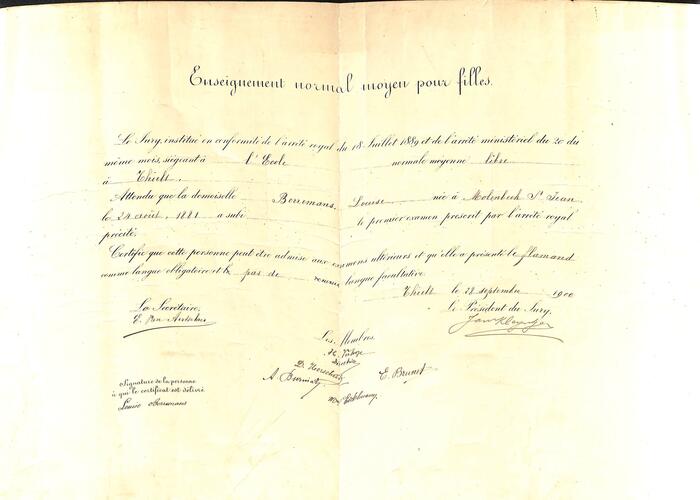 Enseignement normal moyen pour filles.
Le Jury, institué en conformité de l'arrêté royal du 18 Juillet 1889 et de l'arrêté ministériel du 20 du
même mois, siégeant à l'Ecole normale moyenne libre
à Thielt,
Attendu que la demoiselle Borremans, Louise née à Molenbeek St Jean
le 24 août, 1881 a subi le premier examen prescrit par l'arrêté royal
précité,
Certifie que cette personne peut être admise aux examens ultérieurs et qu'elle a présenté le flamand
comme langue obligatoire et le pas de comme langue facultative.
Thielt le 28 septembre 1900
La Secrétaire, Le Président du Jury,
Les Membres
D.
A. E. Brunet
Signature de la personne
à qui le certificat est délivré
Louise Borremans